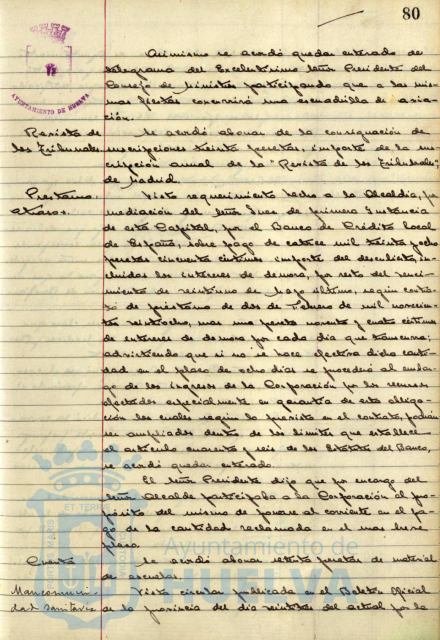 80
AYUNTAMIENTO DE HUELVA
Asimismo se acordó quedar enterado de
telegrama del Excelentísimo Señor Presidente del
Consejo de Ministros participando que a las mis-
mas fiestas concurrirá una escuadrilla de avia-
ción.
Revista de
los Tribunales.
Se acordó abonar de la consignación de
suscripciones treinta pesetas, importe de la sus-
cripción anual de la "Revista de los Tribunales",
de Madrid.
Préstamo.
Atrasos.
Visto requerimiento hecho a la Alcaldía, por
mediación del Señor Juez de primera Instancia
de esta Capital, por el Banco de Crédito Local
de España, sobre pago de catorce mil treinta y ocho
pesetas cincuenta céntimos importe del descubierto, in-
cluidos los intereses de demora, por resto del venci-
miento de veintiuno de Mayo último, según contra-
to de préstamo de dos de Febrero de mil novecien-
tos veintiocho, mas una peseta noventa y cuatro céntimos
de intereses de demora por cada día que transcurra;
advirtiendo que si no se hace efectiva dicha canti-
dad en el plazo de ocho días se procederá al embar-
go de los ingresos de la Corporación por los recursos
afectados especialmente en garantía de esta obliga-
ción los cuales según lo previsto en el contrato, podrán
ser ampliados dentro de los límites que establece
el artículo cuarenta y seis de los Estatutos del Banco,
se acordó quedar enterado.
El Señor Presidente dijo que por encargo del
Señor Alcalde participaba a la Corporación el pro-
pósito del mismo de ponerse al corriente en el pa-
go de la cantidad reclamada en el mas breve
plazo.
Cuenta
Se acordó abonar setenta pesetas de material
de escuelas.
Mancomuni-
dad sanitaria
Vista circular publicada en el Boletín Oficial
de la provincia del día veintitres del actual por la
Ayuntamiento de
HUELVA